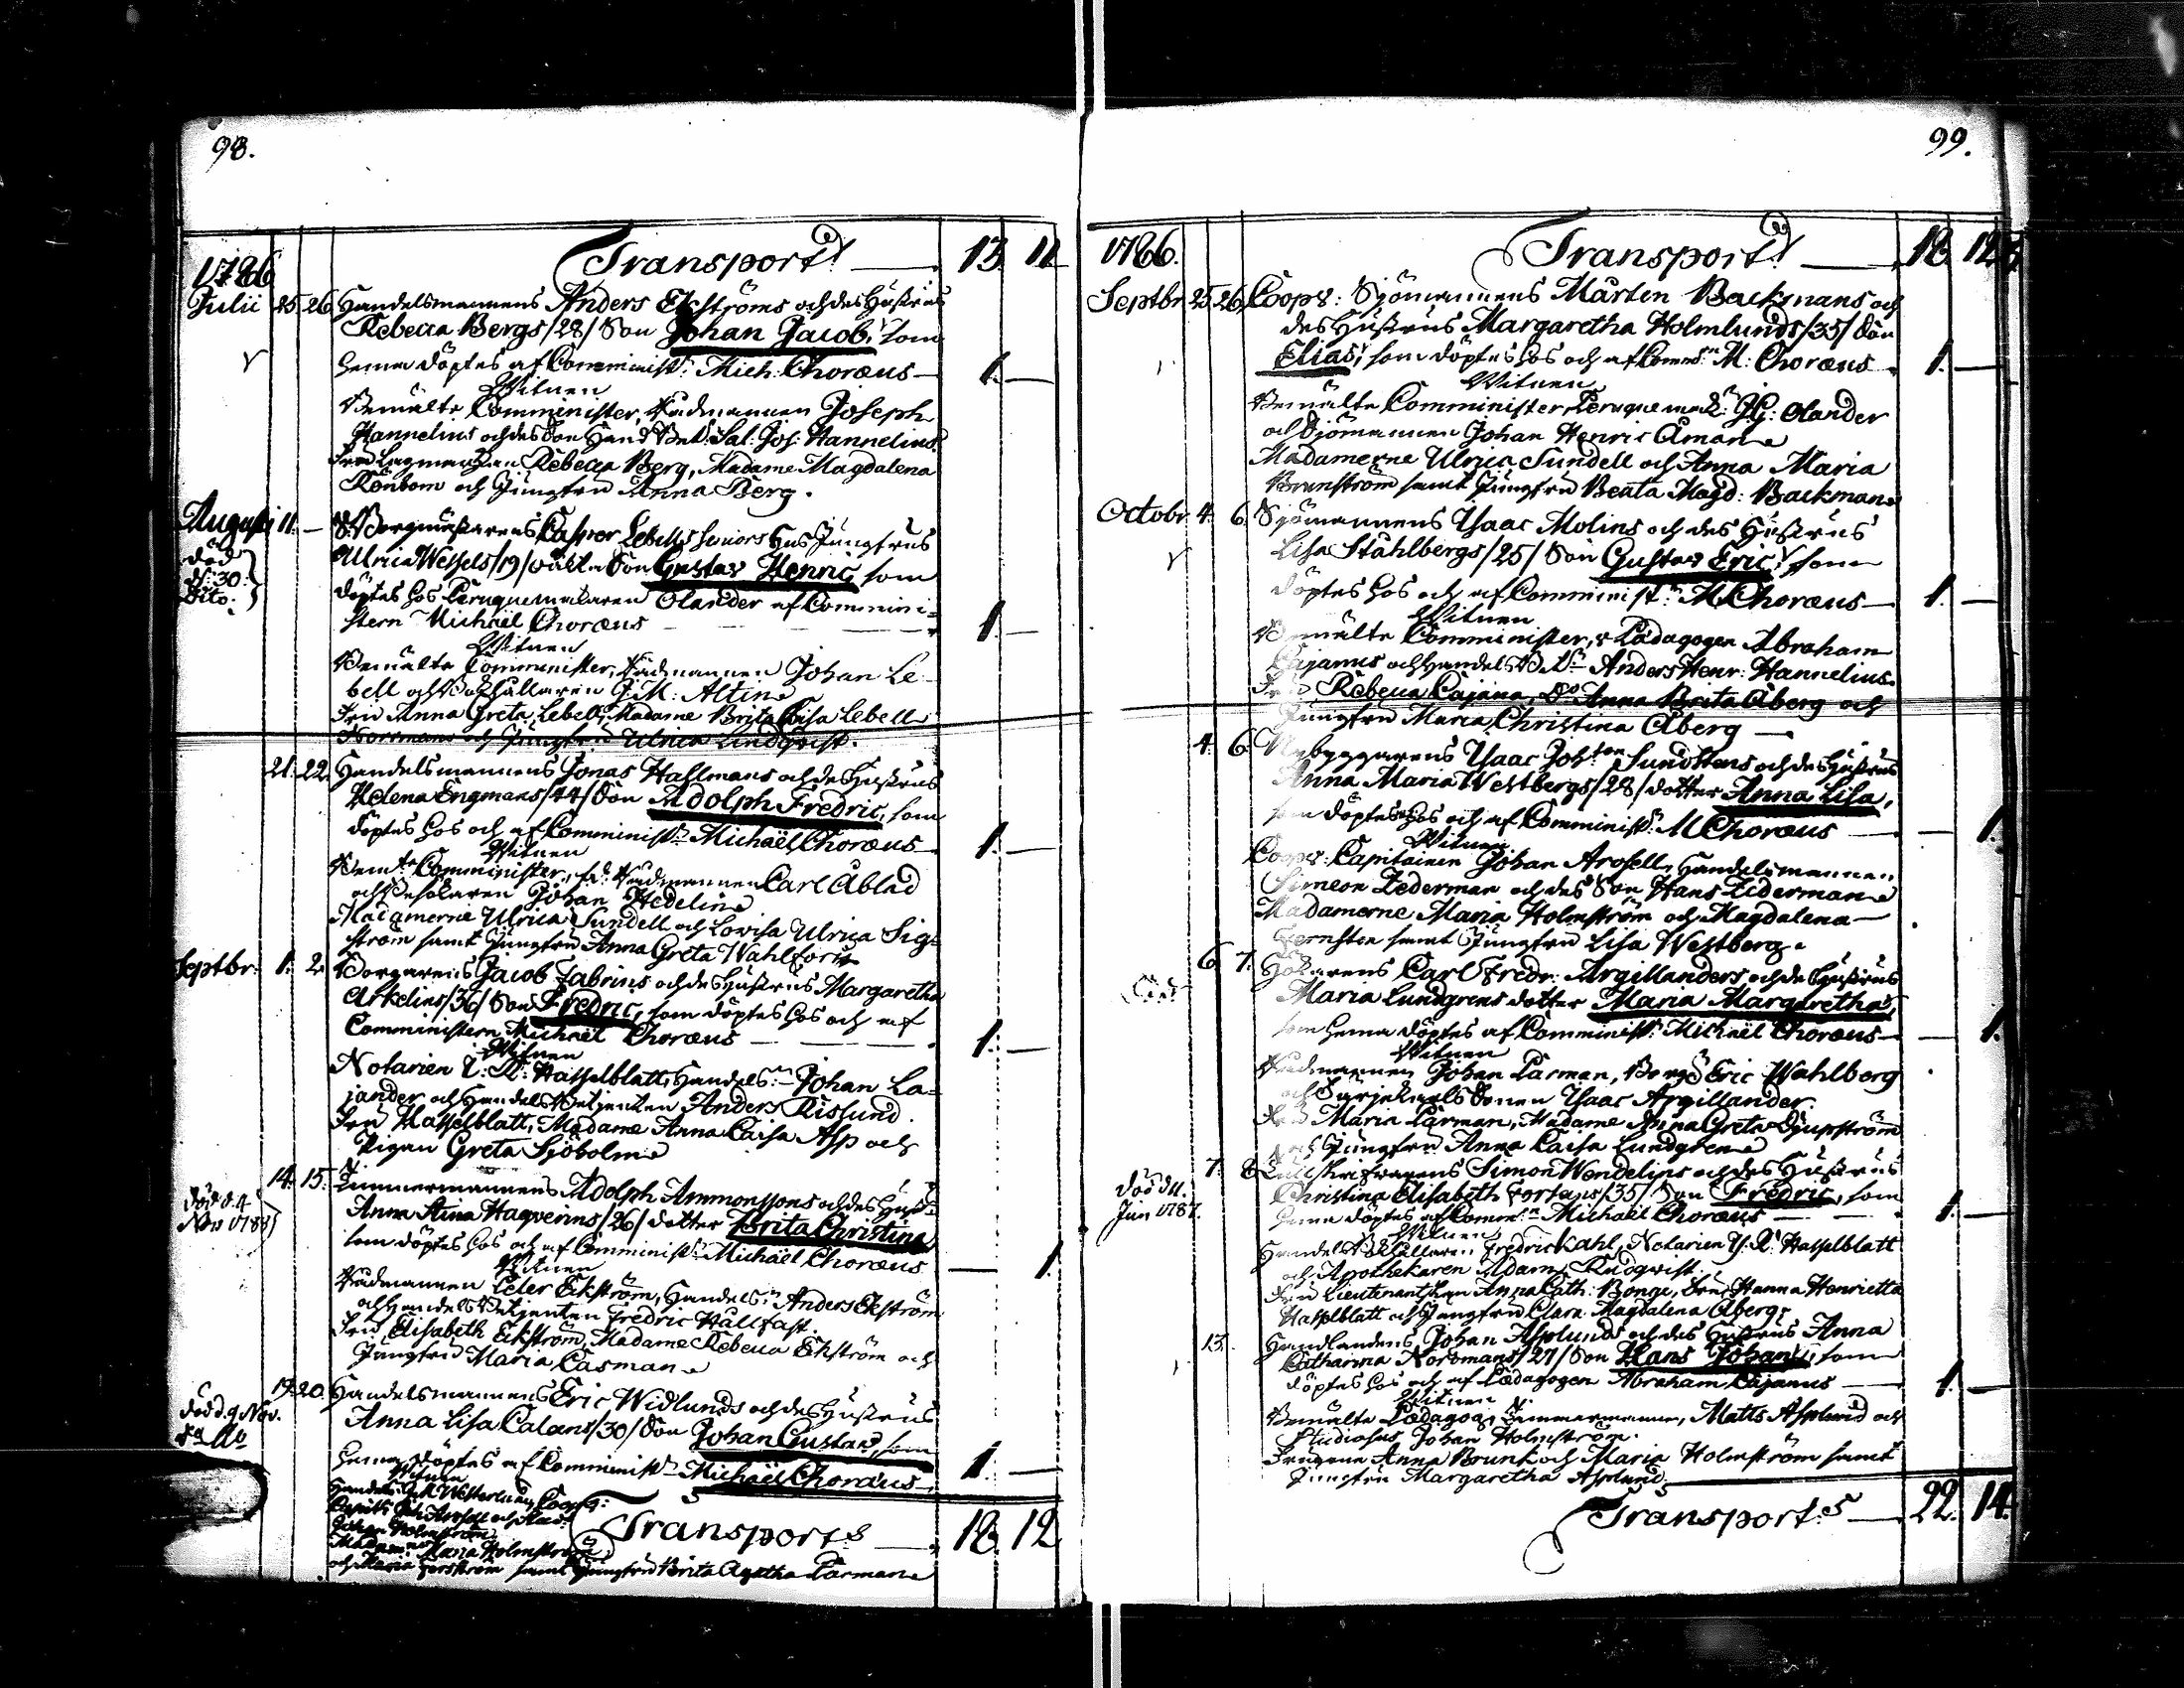 98.
Transport! 13. 11
1786
Julii 25. 26. Handelsmannens Anders Ekströms och des Hustrus
Rebecca Bergs /28/ Son Johan Jacob, som
hemma döptes af Comminist: Mich: Choræus 1.
Witnen
Bemälte Comminister, Rådmannen Joseph
Hannelius och des Son Hand. Bet: Sal: Jos: Hannelius.
Fru Lagmanskan Rebecca Berg, Madame Magdalena
Rönbom och Jungfru Anna Berg.
Augusti 11. Borgmästarens Casper Lebells Seniors Hus Jungfrus
Ulrica Wessels /19/ oäkta Son Gustav Henric, som
död
d: 30:
Dito.
döptes hos Peruquemakaren Olander af Commini=
stern Michaël Choræus 1.
Witnen
Bemälte Comminister, Rådmannen Johan Le=
bell och Bokhållaren J: M: Altin
Fru Anna Greta Lebell, Madame Brita Caisa Lebell
Norrmans och Jungfru Ulrica Lindqvist.
21. 22. Handelsmannens Jonas Hahlmans och des Hustrus
Helena Engmans /44/ Son Adolph Fredric, som
döptes hos och af Comminist: Michaël Choræus 1.
Witnen
Bem:te Comminister, Rådmannen Carl Åblad
och Johan Hedelin
Madamerne Ulrica Sundell och Lovisa Ulrica Sig=
ström samt Jungfru Anna Greta Wahlfors
Septbr: 1. 2. Borgarens Jacob Fabrins och des Hustrus Margaretha
Arkelins /36/ Son Fredric, som döptes hos och af
Comministern Michaël Choræus 1.
Witnen
Notarien Hasselblatt, Handels: Johan La=
jander och Handels Betjenten Anders Risslund.
Fru Hasselblatt, Madame Anna Caisa Asp och
Pigan Greta Sjöholm
14. 15. Timmermannens Adolph Ammonssons och des Hust:
Anna Stina Hagverins /26/ dotter Brita Christina
död d. 4
Nov 1788
som döptes hos och af Comminist: Michaël Choræus 1.
Witnen
Rådmannen Peter Ekström, Handels: Anders Ekström
och Handels Betjenten Fredric Hållfast.
Fru Elisabeth Ekström, Madame Rebecca Ekström och
Jungfru Maria Casman
19. 20. Handelsmannens Eric Widlunds och des Hustrus
död d. 9 Nov.
Anna Lisa Calans /30/ Son Johan Gustav, som
hemma döptes af Comminist: Michaël Choræus 1.
Witnen
Handels: Westerlund, Coopv:
Capit: Joh: Arosell och
Johan Holmström
Madam: Maria Holmström
och Maria Forsström samt Jungfru Brita Agatha Carman
Transport: 18. 12
99.
1786. Transport! 18. 12
Septbr 25. 26. Coopv: Sjömannens Mårten Backmans och
des Hustrus Margaretha Holmlunds /35/ Son
Elias, som döptes hos och af Comm: M: Choræus 1.
Witnen
Bemälte Comminister, Peruquemak: J. G: Olander
och Sjömannen Johan Henric Åman
Madamerne Ulrica Sundell och Anna Maria
Brunström samt Jungfru Beata Magd: Backman
Octobr. 4. 6. Sjömannens Isaac Molins och des Hustrus
Lisa Ståhlbergs /25/ Son Gustav Eric, som
döptes hos och af Comminist: M: Choræus 1.
Witnen
Bemälte Comminister, Pædagogen Abraham
Cajanus och Handels Bet: Anders Henr: Hannelius.
Fru Rebecca Cajana, D:o Anna Brita Åberg och
Jungfru Maria Christina Åberg
4. 6. Nybyggarens Isaac Joh:son Sundstens och des Hustrus
Anna Maria Westbergs /28/ dotter Anna Lisa,
som döptes hos och af Comminist: M Choræus 1.
Witnen
Coopv: Capitainen Johan Arosell, Handelsmannen
Simeon Lederman och des Son Hans Liderman
Madamerne Maria Holmström och Magdalena
Fernsten samt Jungfru Lisa Westberg.
6. 7. Carl Fredr: Argillanders och des Hustrus
Maria Lundgrens dotter Maria Margaretha,
som hemma döptes af Comminist: Michaël Choræus 1.
Witnen
Rådmannen Johan Carman, Borg: Eric Wahlberg
och Isaac Argillander.
Fru Maria Carman, Madame Anna Greta Djupström
och Jungfru Anna Caisa Lundgren
7. 8. Simon Wendelins och des Hustrus
död d 11.
Jun 1787.
Christina Elisabeth Forsans /35/ Son Fredric, som
hemma döptes af Comm: Michaël Choræus 1.
Witnen
Handels Bokhållaren Fredric Kahl, Notarien Hasselblatt
och Apothekaren Adam Rudqvist.
Fru Lieutenantskan Anna Cath: Bonge, Hanna Henrietta
Hasselblatt och Jungfru Clara Magdalena Åberg.
13. Handlandens Johan Asplunds och des Hustrus Anna
Catharina Norrmans /27/ Son Hans Johan, som
döptes hos och af Pædagogen Abraham Cajanus 1.
Witnen
Bemälte Pædagog, Timmermannen, Matts Asplund och
Studiosus Johan Holmström.
Fruarna Anna Brunk och Maria Holmström samt
Jungfru Margaretha Asplund.
Transport: 22. 14.